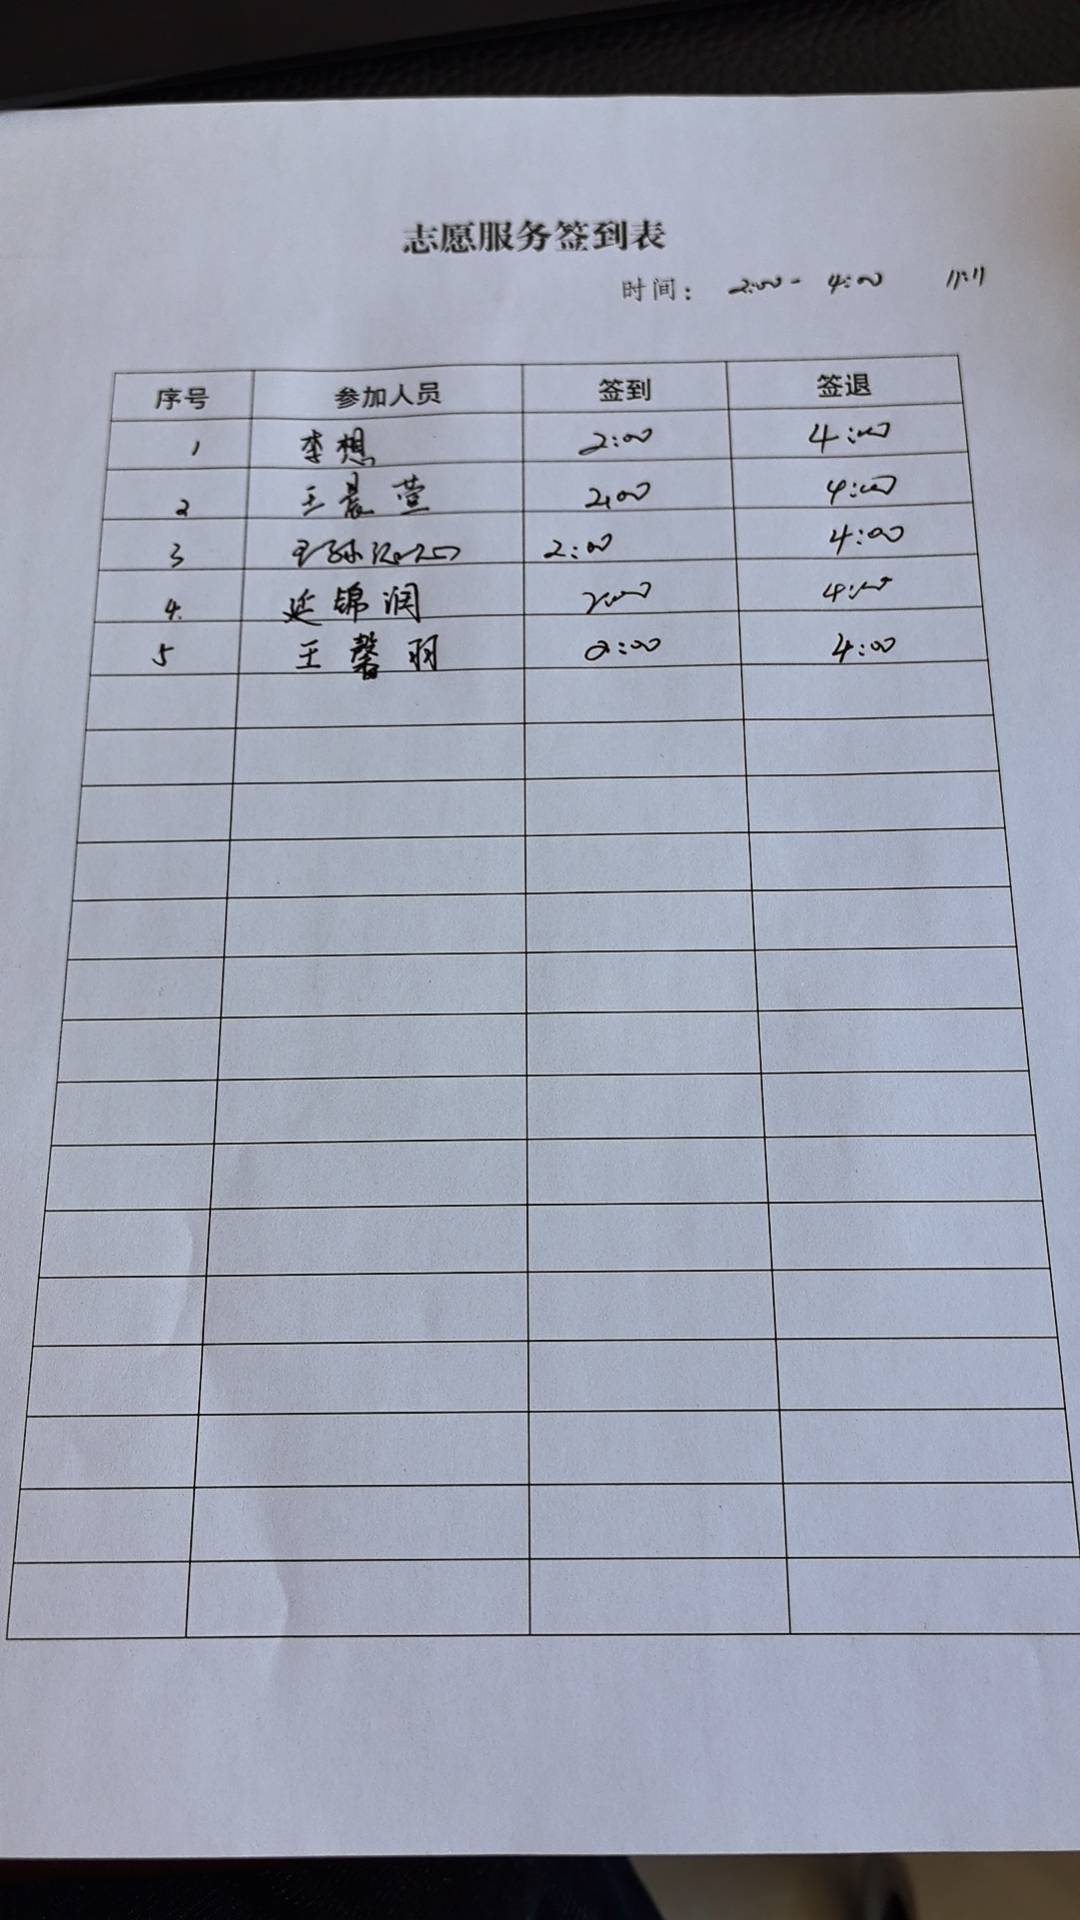 志愿服务签到表
时间： 2:00 - 4:00 11.11
序号 参加人员 签到 签退
1 李想 2:00 4:00
2 王晨萱 2:00 4:00
3 2:00 4:00
4. 延锦润 2:00 4:00
5 王馨羽 2:00 4:00